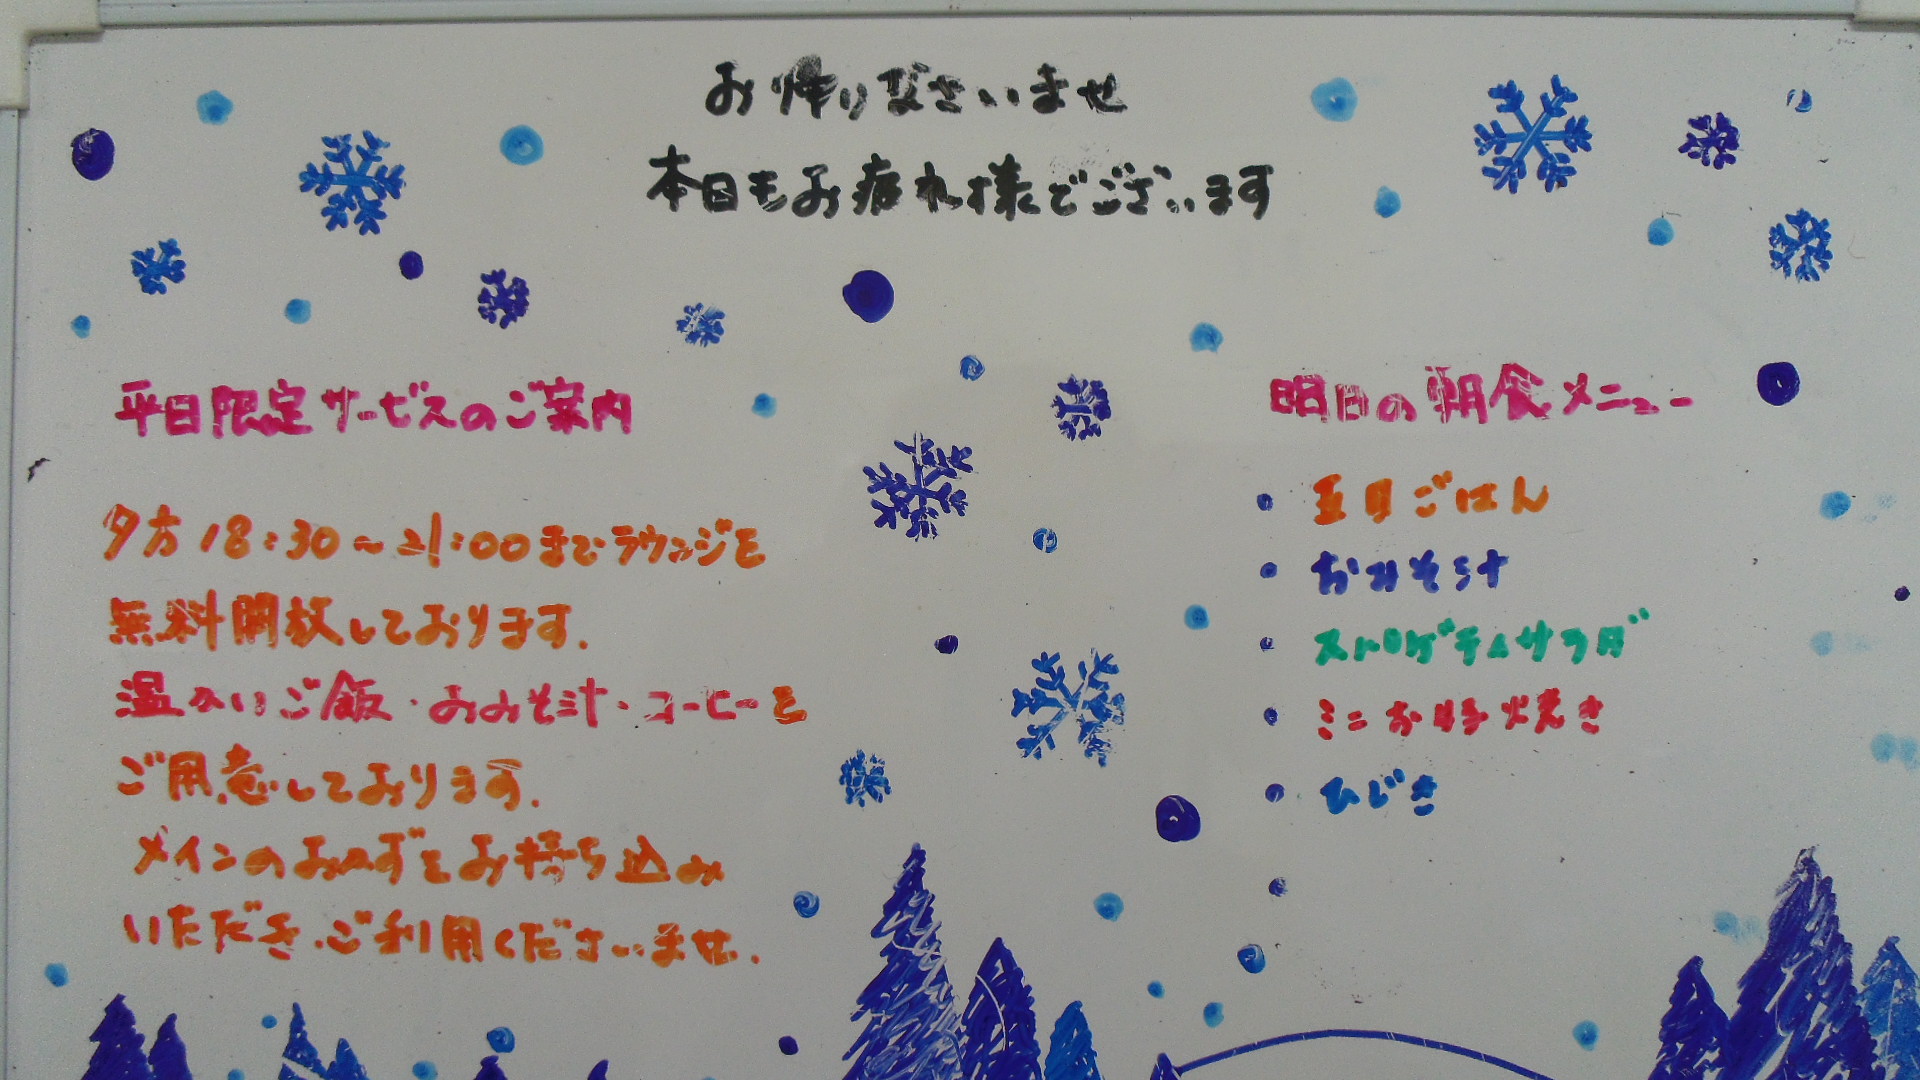 お帰りなさいませ
本日もお疲れ様でございます
平日限定サービスのご案内
夕方18:30~21:00までラウンジを
無料開放しております.
温かいご飯・おみそ汁・コーヒーを
ご用意しております.
メインのおかずをお持ち込み
いただき、ご利用くださいませ.
明日の朝食メニュー
・五目ごはん
・おみそ汁
・スパゲティサラダ
・ミニお好焼き
・ひじき